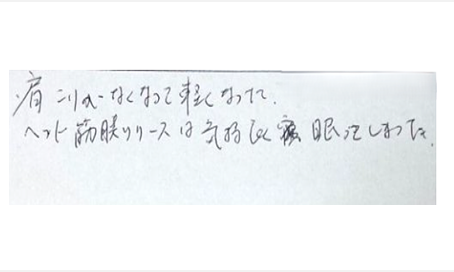 肩こりがなくなって軽くなった.
ヘッド筋膜リリースは気持よく眠ってしまった.